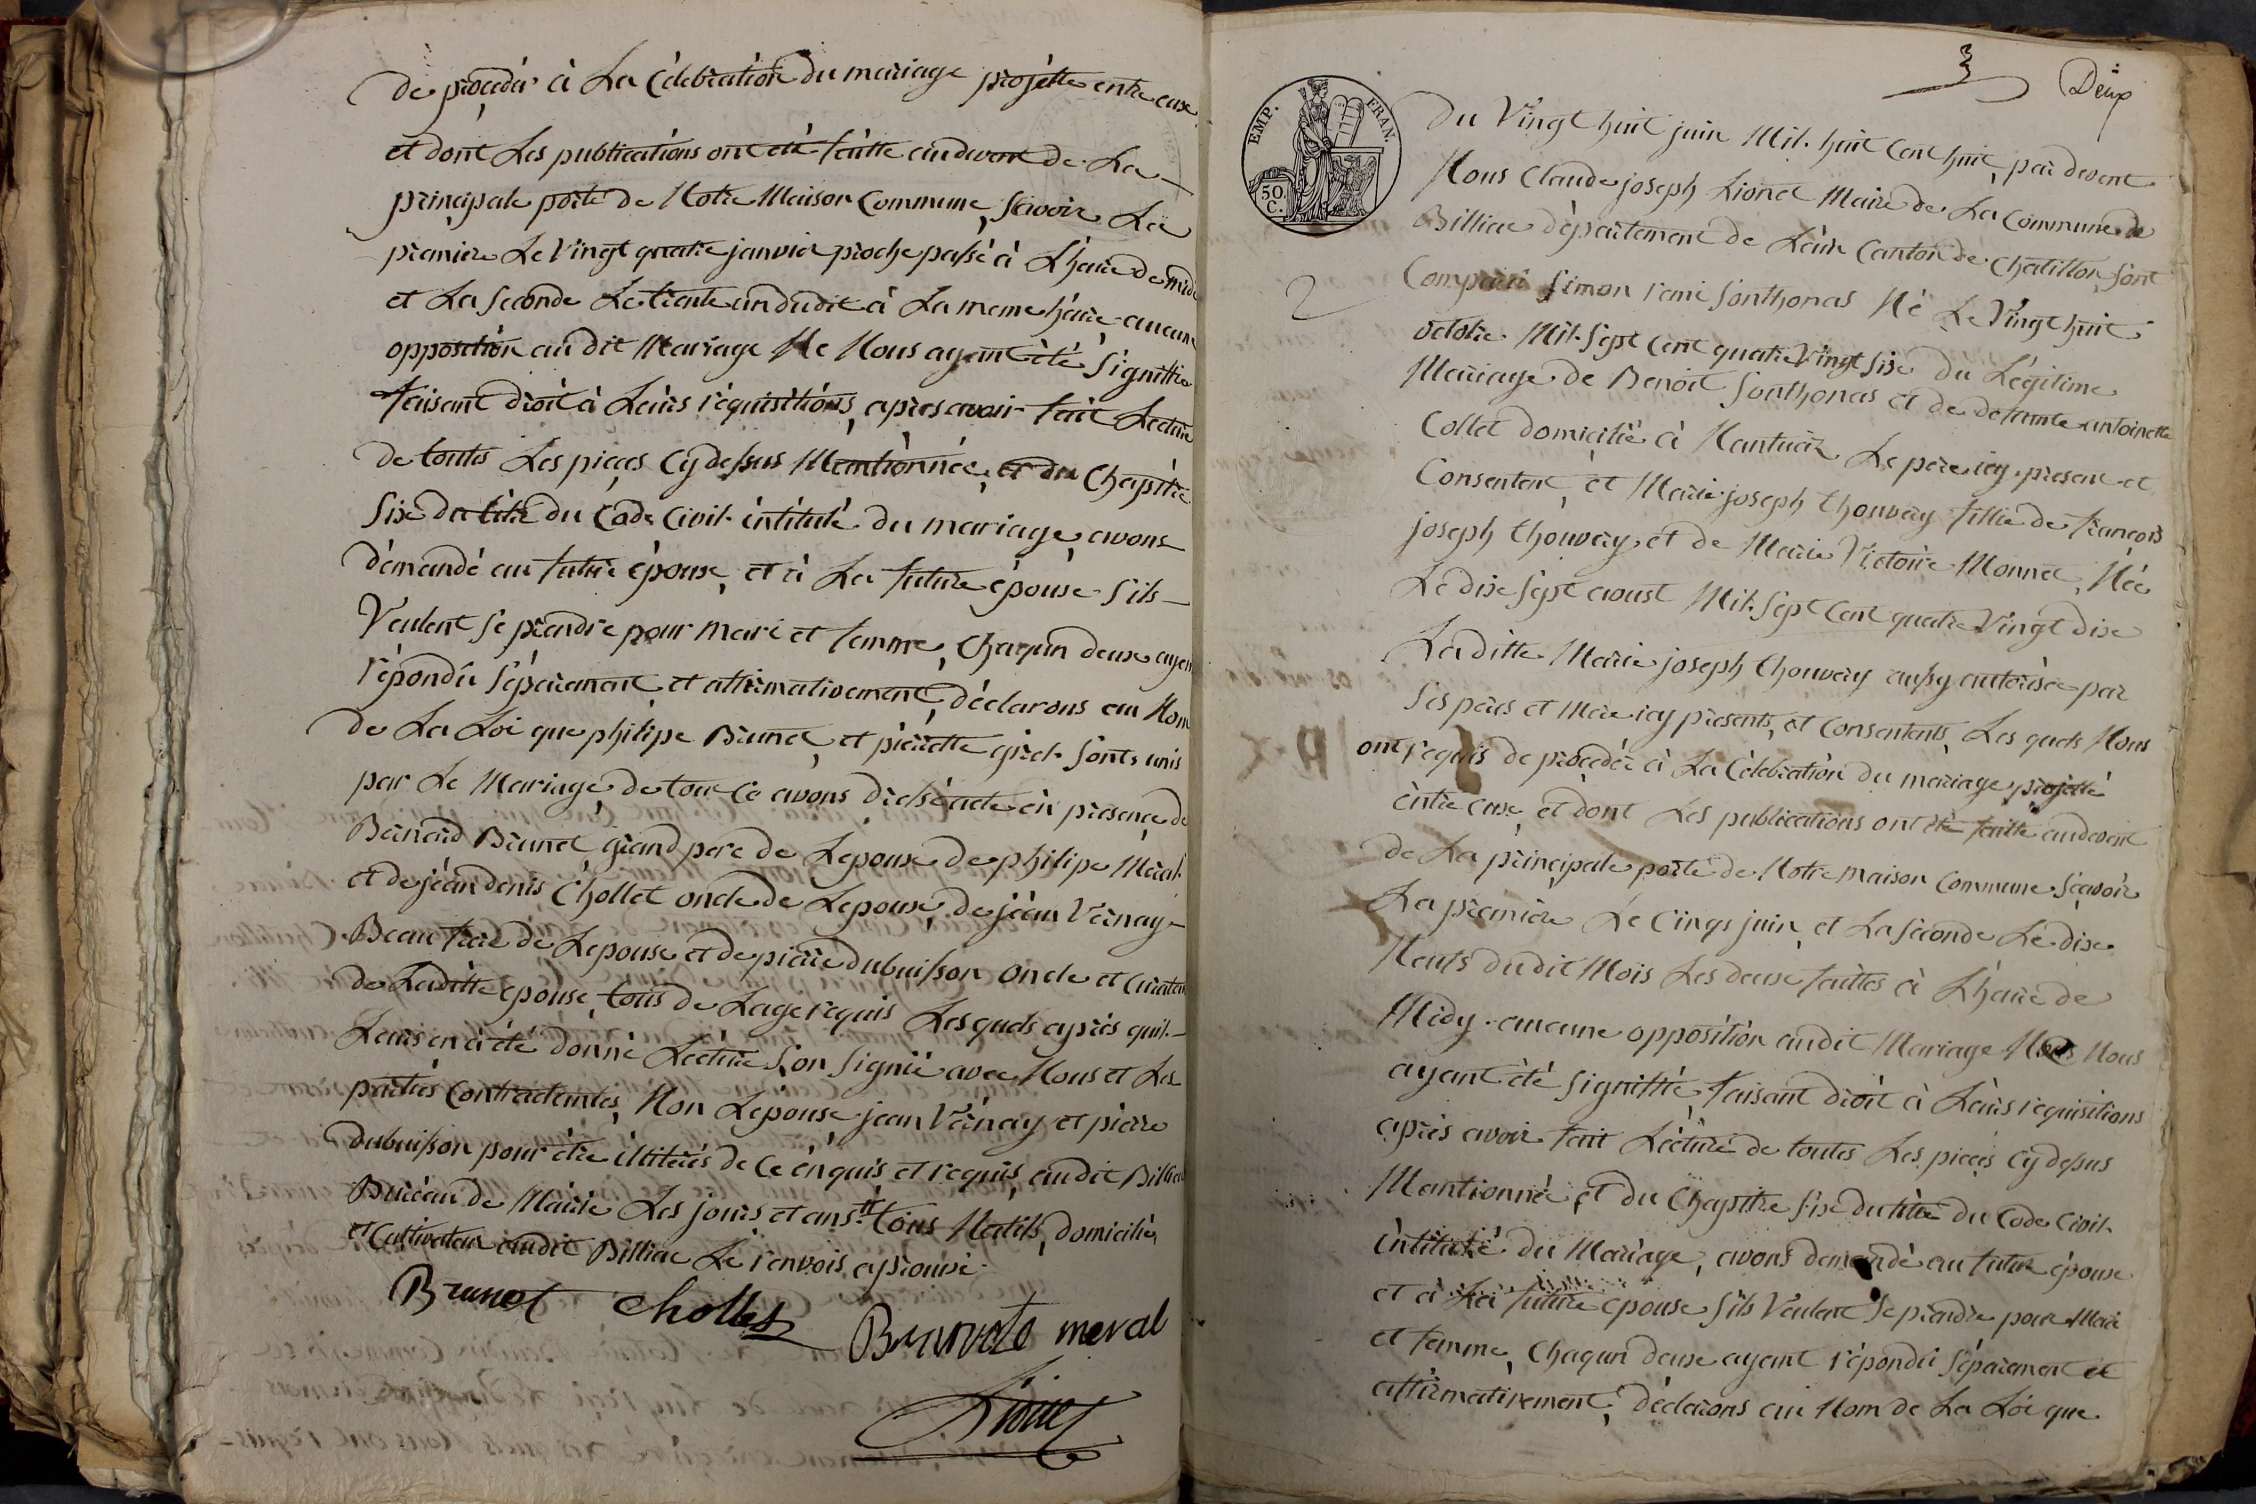 de procedér à La Célébration du mariage projette entre eux
et dont Les publications ont été faitte audevant de La
principale porte de Notre Maison Commune, Scavoir La
premiere Le Vingt quatre janvier proche passé à L'haure de midi
et La Seconde Le trente un dudit à La meme háure aucune
opposition au dit Mariage Ne Nous ayant été Signiffie
faisant droit à Leurs réquisitions, apres avoir fait Lecture
de toutes Les pieces Cydessus Mentionnée, et du Chapitre
Six du titre du Code Civil intitulé du mariage, avons
démandé au future épouse, et à La future épouse S'ils
Veulent Se prendre pour mari et femme, Chaqun deux ayent
répondu Séparement, et affirmativement, déclarons au Nom
de La Loi que philipe Brunet, et pierrette girel Sonts unis
par Le Mariage, de tout Ce avons diessé acte én présence de
Bernard Brunet grand pere de Lepoux de philipe Méral
et de jéan denis Chollet oncle de Lepouse, de jéan Vérnay
Beau frere de Lepouse et de pierre dubuisson oncle et Curateur
de Laditte épouse, tous de Lage requis Lesquels après quil
Leurs en a été donné Lecture, Son Signié avec Nous et Les
parties Contractentes, Non Lepouse jean Vérnay et pierre
dubuisson pour étre illitérés de Ce énquis, et requis, audit Billiac
Buréau de Mairie Les jours et ans. tt tous Natifs, domicilie,
et Cultivateur audit Billiac Le renvois approuvé.
Brunet Chollet Brunete meral
Lionet
3 Deux
EMP. FRAN.
50 C.
Du Vingt huit juin Mil. huit Cent huit, par devent
Nous Claude joseph Lionet Maire de La Commune de
Billiac département de Lain Canton de Chatillon, Sont
2
Comparu Simon remi Sonthonas Né Le Vingt huit
octobre Mil. Sept Cent quatre Vingt Six du Légitime
Mariage de Benoit Sonthonas et de defunte antoinette
Collet domicilié à Nantua Le pere icy présent et
Consentent, et Marie joseph thouvery fillie de françois
joseph thouvery et de Marie Victoire Monnet, Née
Le dix Sept aoust Mil. Sept Cent quatre Vingt dix
Laditte Marie joseph thouvery aussy autorisée par
Ses péres et Mere icy présents, et Consentents, Les quels Nous
ont réquis de procédér à La Célébration du mariage projetté
éntre eux, et dont Les publications ont été faitte audevent
de La principale porte de Notre maison Commune Scavoir
La premiere Le Cinqs juin, et La Seconde Le dix
Neufs dudit Mois Les deux faittes à L'haure de
Midy. aucune opposition audit Mariage Nous
ayant été Signiffié faisant droit à Leurs réquisitions
aprés avoir fait Lécture de toutes Les piecés Cydessus
Mentionnée, et du Chapitre Six du titre du Code Civil.
intitulé du Mariage, avons demandé au future épouse
et à La future épouse S'ils Veulent Se prendre pour Mari
et femme, Chaqun deux ayent répondu Séparement et
affirmativement, déclarons au Nom de La Loi que